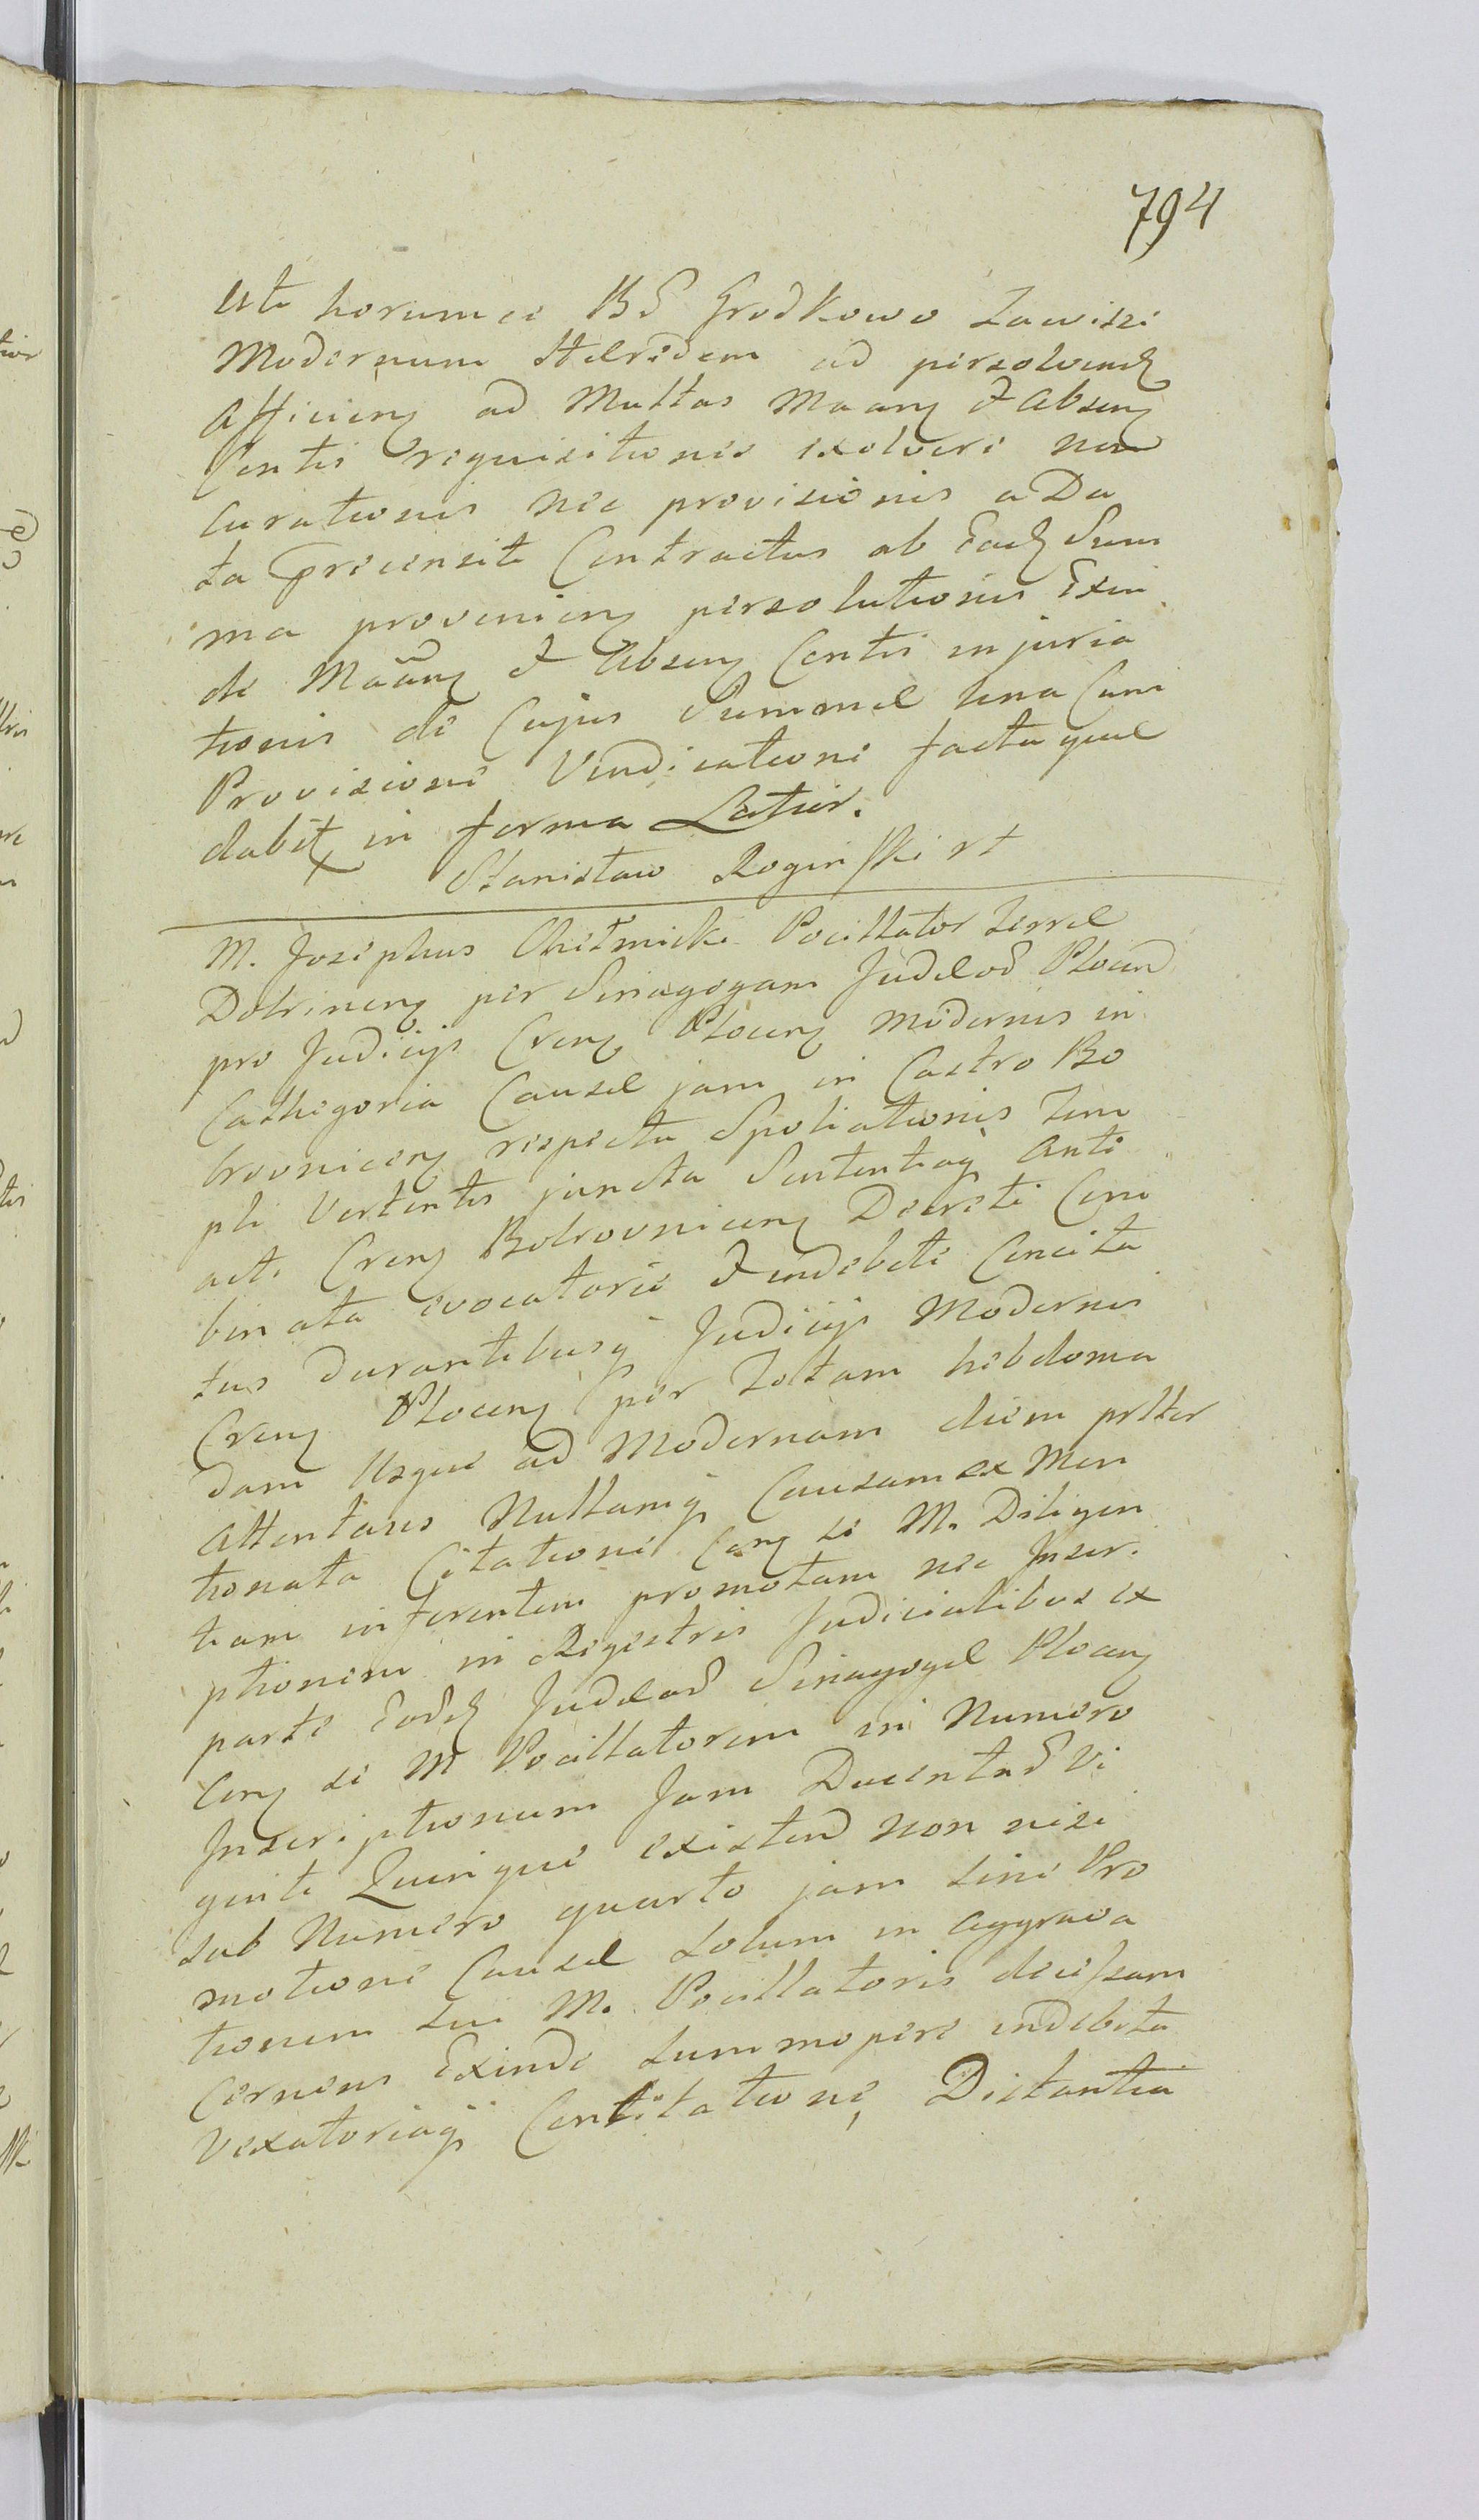 794
uti horumce Bd Grodkowo Zawiszi
Modernum Haeredem ad persolvend
afficien ad Multas Maan & absen
Centis requisitiones exolvere non
curationis nec provisionis a Da
ta praecensiti Contractus ab Ead Sum
ma provenien persolutionis Exin
de Maan & Absen Centis injuria
tionis de Cujus Summae una Cum
Provisione Vindicatione factaquae
dabit in forma Latior.
Stanisław Rogiński rt
M. Josephus Chełmicki Pocillator Terrae
Dobrinen per Sinagogam Judaeor Plocen
pro Judicijs Cren Plocen modernis in
Cathegoria Causae jam in Castro Bo
brovnicen respectu Spoliationis Tem
pli Vertentis juncta Sententiaq anti
acti Cren Bobrovnicen Decreti Com
binata evocatorie & indebite Concita
tus durantibusq Judicijs Modernis
Cren Plocen per Totam hebdoma
dam Usque ad Modernam diem prlter
attentans Nullamq Causam ex Men
tionata Citatione Con se M. Diligen
tiam inferentem promotam nec Inscri
ptionem in Regestris Judicialibus ex
parte Eord Judaeor Sinagogae Plocen
Con se M Pocillatorem in Numero
Inscriptionum Jam Ducentar Vi
ginti Quinque existen non nisi
sub Numero quarto jam sine Pro
motione Causae solum in aggrava
tionem sui M. Pocillatoris decissam
Cernens Exinde summopere indebita
Vexatoriaq Concitatione Distantia